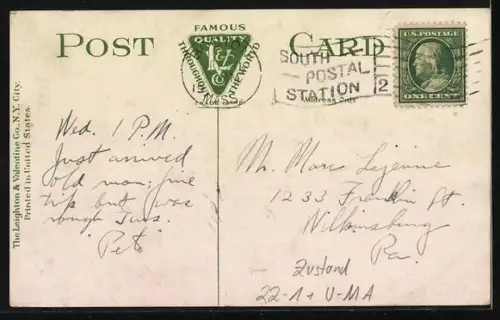 FAMOUS
QUALITY
L&V
Co
THROUGHOUT THE WORLD
POST CARD
MASS
SOUTH
POSTAL
STATION
2
Address Only.
U.S. POSTAGE
ONE CENT
The Leighton & Valentine Co., N.Y. City.
Printed in United States.
Wed. 1 P.M.
Just arrived
old man; fine
trip but was
rough
"Pet"
Mr. Marc Lejenne
1233 Franklin St.
Wilkinsburg
Pa.
Zustand
22-1+ U-MA